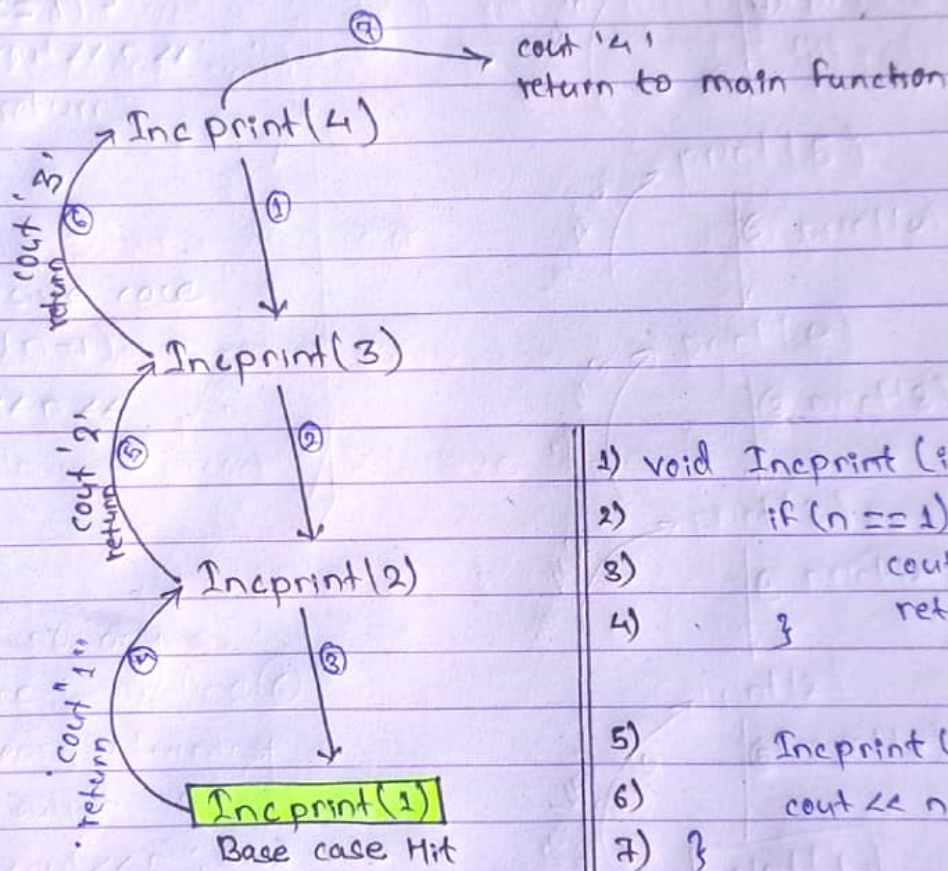 ⑦
cout '4'
return to main function
Incprint(4)
cout '3'
return
⑥
①
Incprint(3)
cout '2'
return
⑤
②
Incprint(2)
cout "1"
return
③
Incprint(1)
Base case Hit
1) void Incprint (i
2) if (n == 1)
3) cou
ret
4) }
5) Incprint (
6) cout << n
7) }